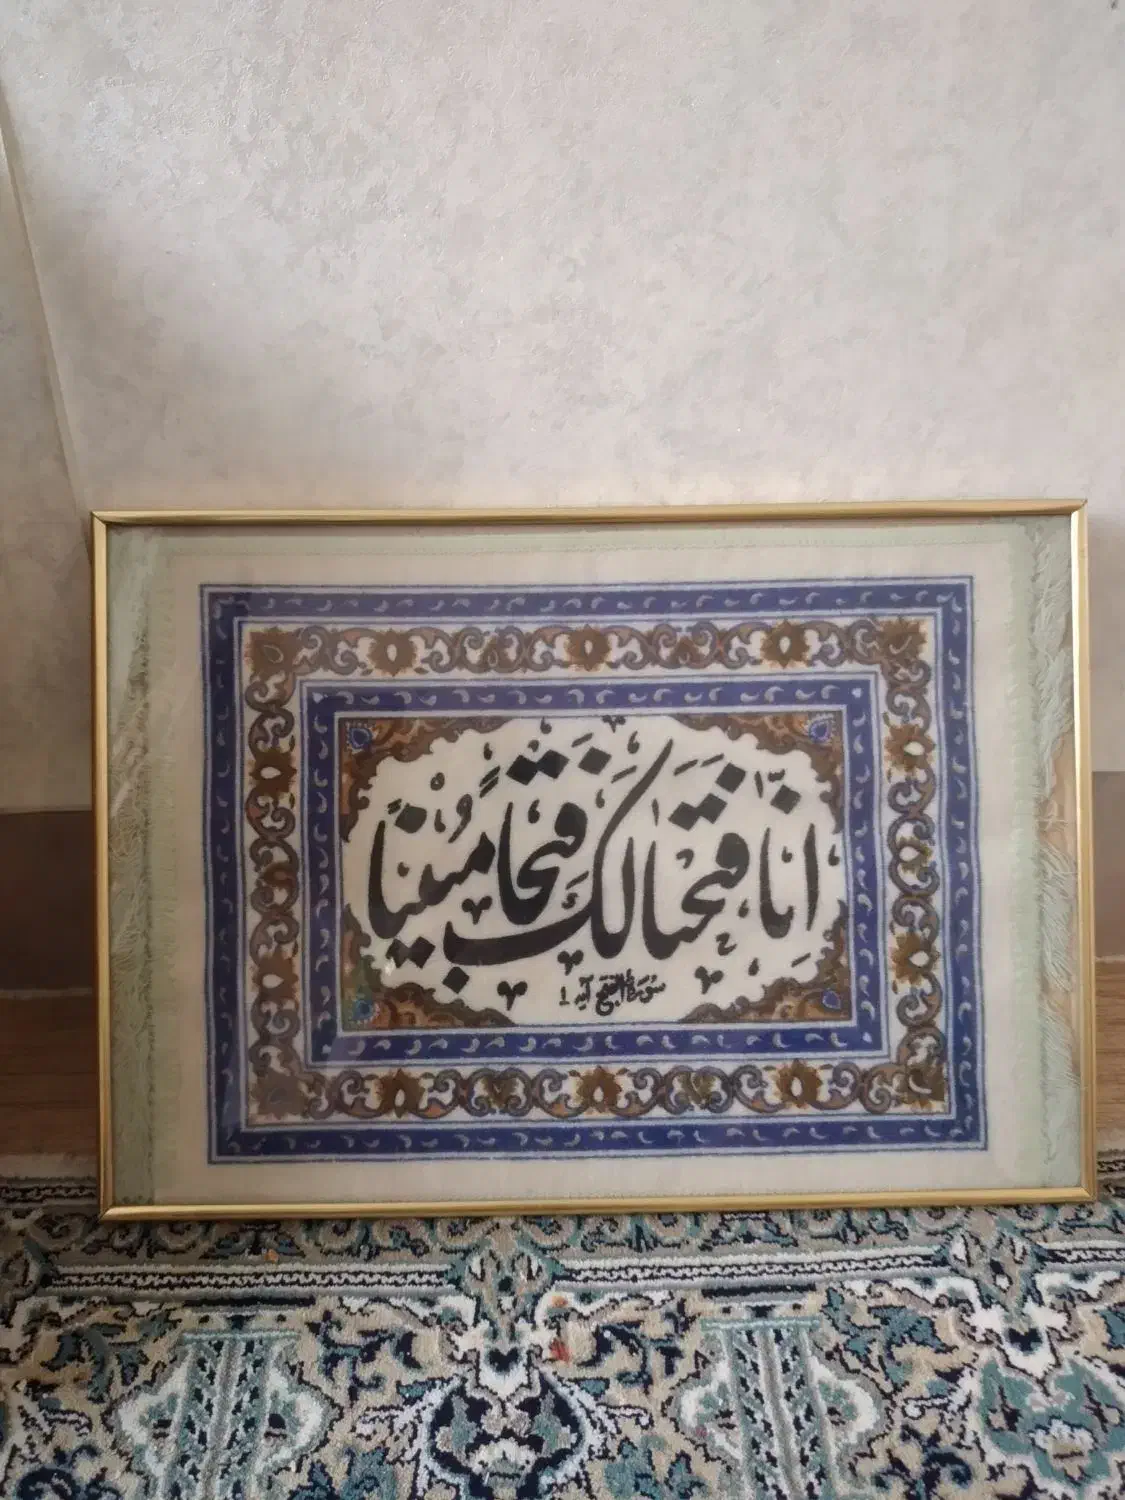 اِنّا فَتَحنا لَكَ فَتحاً مُبیناً
سورة الفتح آیه 1